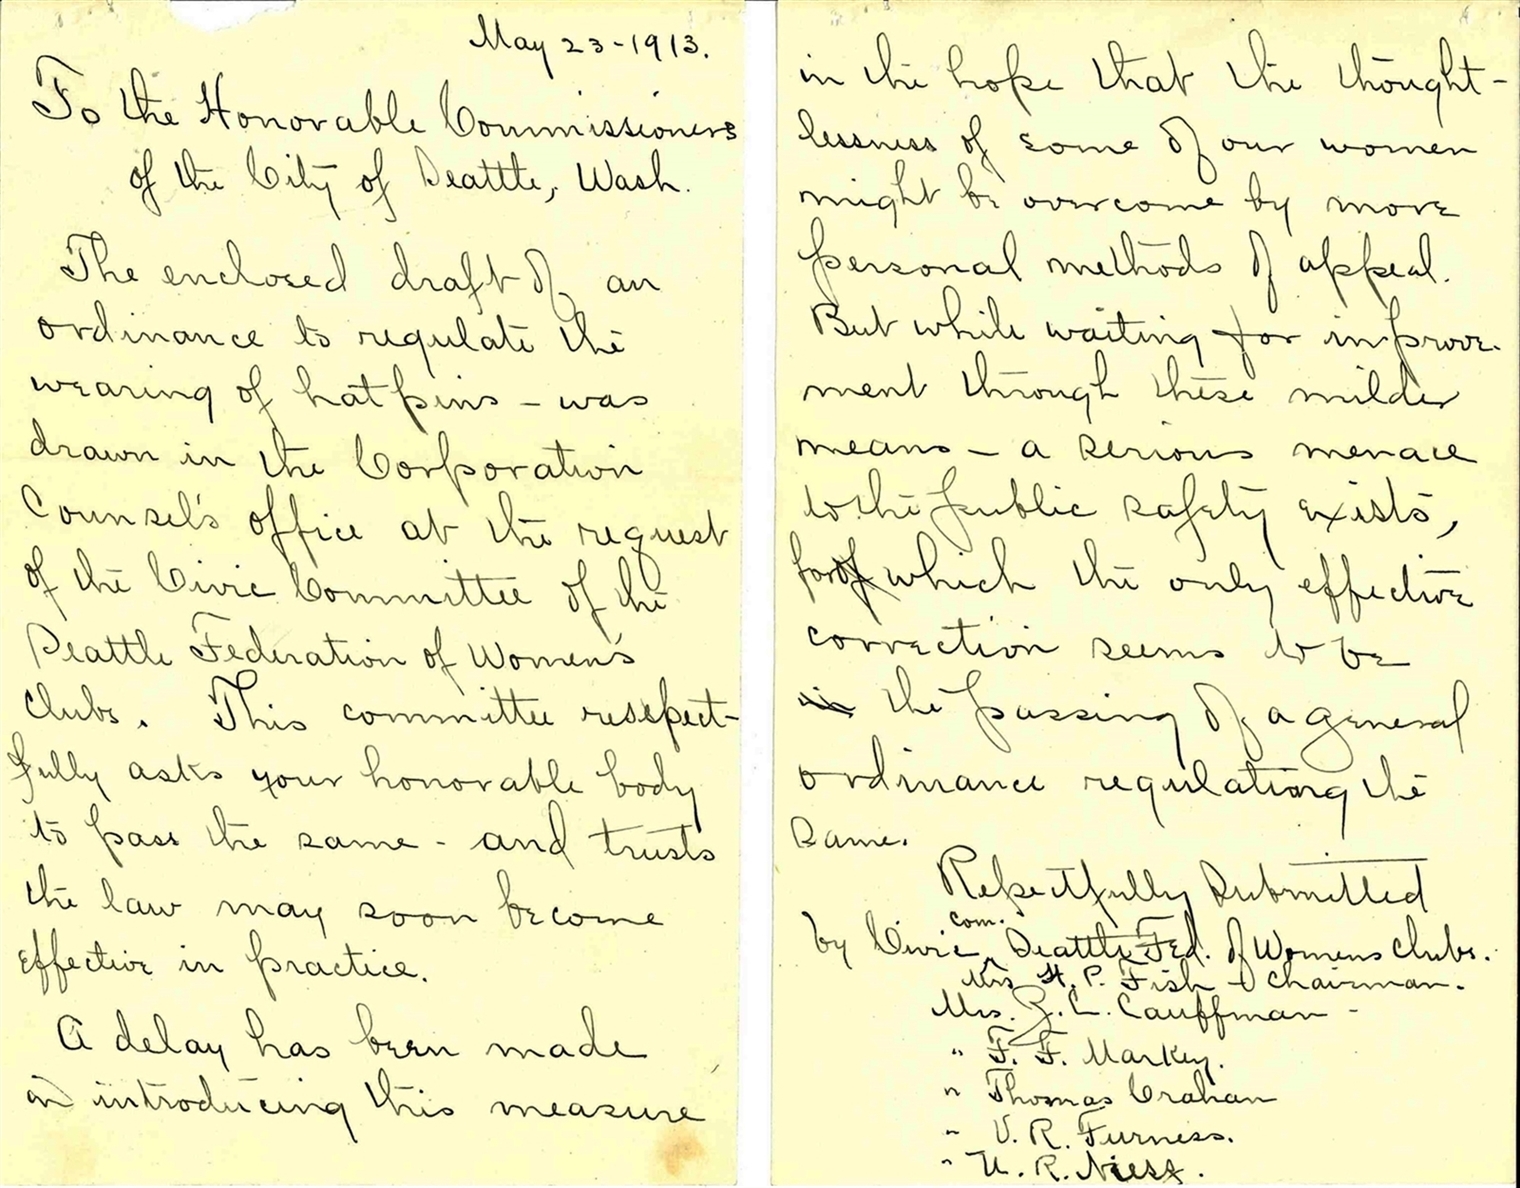 May 23-1913.
To the Honorable Commissioners
of the City of Seattle, Wash.
The enclosed draft of an
ordinance to regulate the
wearing of hat pins - was
drawn in the Corporation
Counsel's office at the request
of the Civic Committee of the
Seattle Federation of Women's
Clubs. This committee respect-
fully asks your honorable body
to pass the same - and trusts
the law may soon become
effective in practice.
A delay has been made
in introducing this measure
in the hope that the thought-
lessness of some of our women
might be overcome by more
personal methods of appeal.
But while waiting for improve-
ment through these milder
means - a serious menace
to the public safety exists,
for which the only effective
correction seems to be
in the passing of a general
ordinance regulating the
same.
Respectfully Submitted
by Civic com. Seattle Fed. of Womens Clubs.
Mrs H. P. Fish - Chairman.
Mrs. Z. C. Cauffman -
" F. F. Markey.
" Thomas Crahan
" V. R. Furness.
" U. R. Niesz.